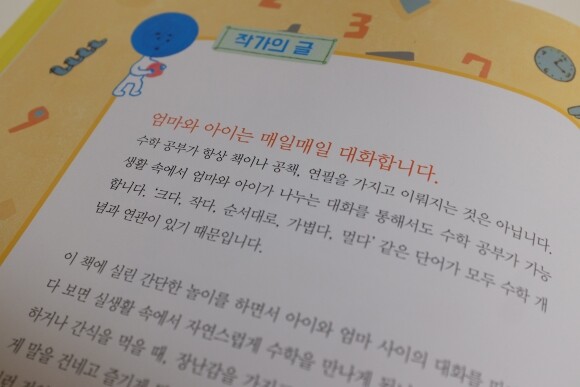 작가의 글
엄마와 아이는 매일매일 대화합니다.
수학 공부가 항상 책이나 공책, 연필을 가지고 이뤄지는 것은 아닙니다.
생활 속에서 엄마와 아이가 나누는 대화를 통해서도 수학 공부가 가능
합니다. ‘크다, 작다, 순서대로, 가볍다, 멀다’ 같은 단어가 모두 수학 개
념과 연관이 있기 때문입니다.
이 책에 실린 간단한 놀이를 하면서 아이와 엄마 사이의 대화를
다 보면 실생활 속에서 자연스럽게 수학을 만나게
하거나 간식을 먹을 때, 장난감을
게 말을 건네고 즐기게